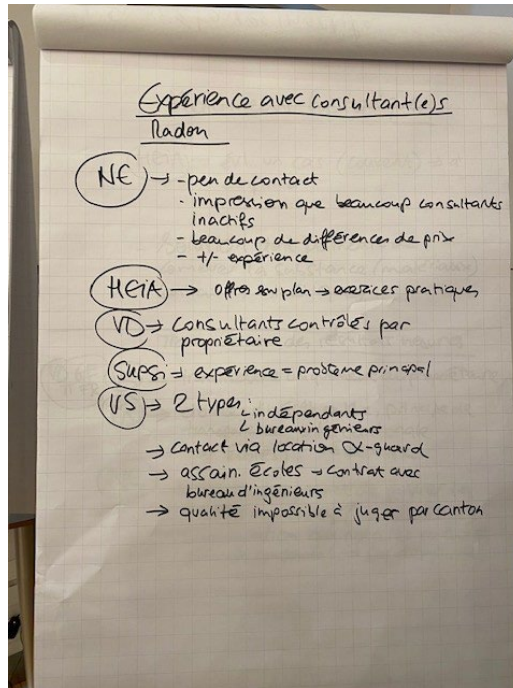 Expérience avec consultant(e)s
Radon
NE → - peu de contact
- impression que beaucoup consultants
inactifs
- beaucoup de différences de prix
- +/- expérience
HEIA → offres sur plan → exercices pratiques
VD → Consultants contrôlés par
propriétaire
Supsi → expérience = problème principal
VS → 2 types:
indépendants
bureaux ingénieurs
→ contact via location α-guard
→ assain. écoles → contrat avec
bureau d'ingénieurs
→ qualité impossible à juger par canton